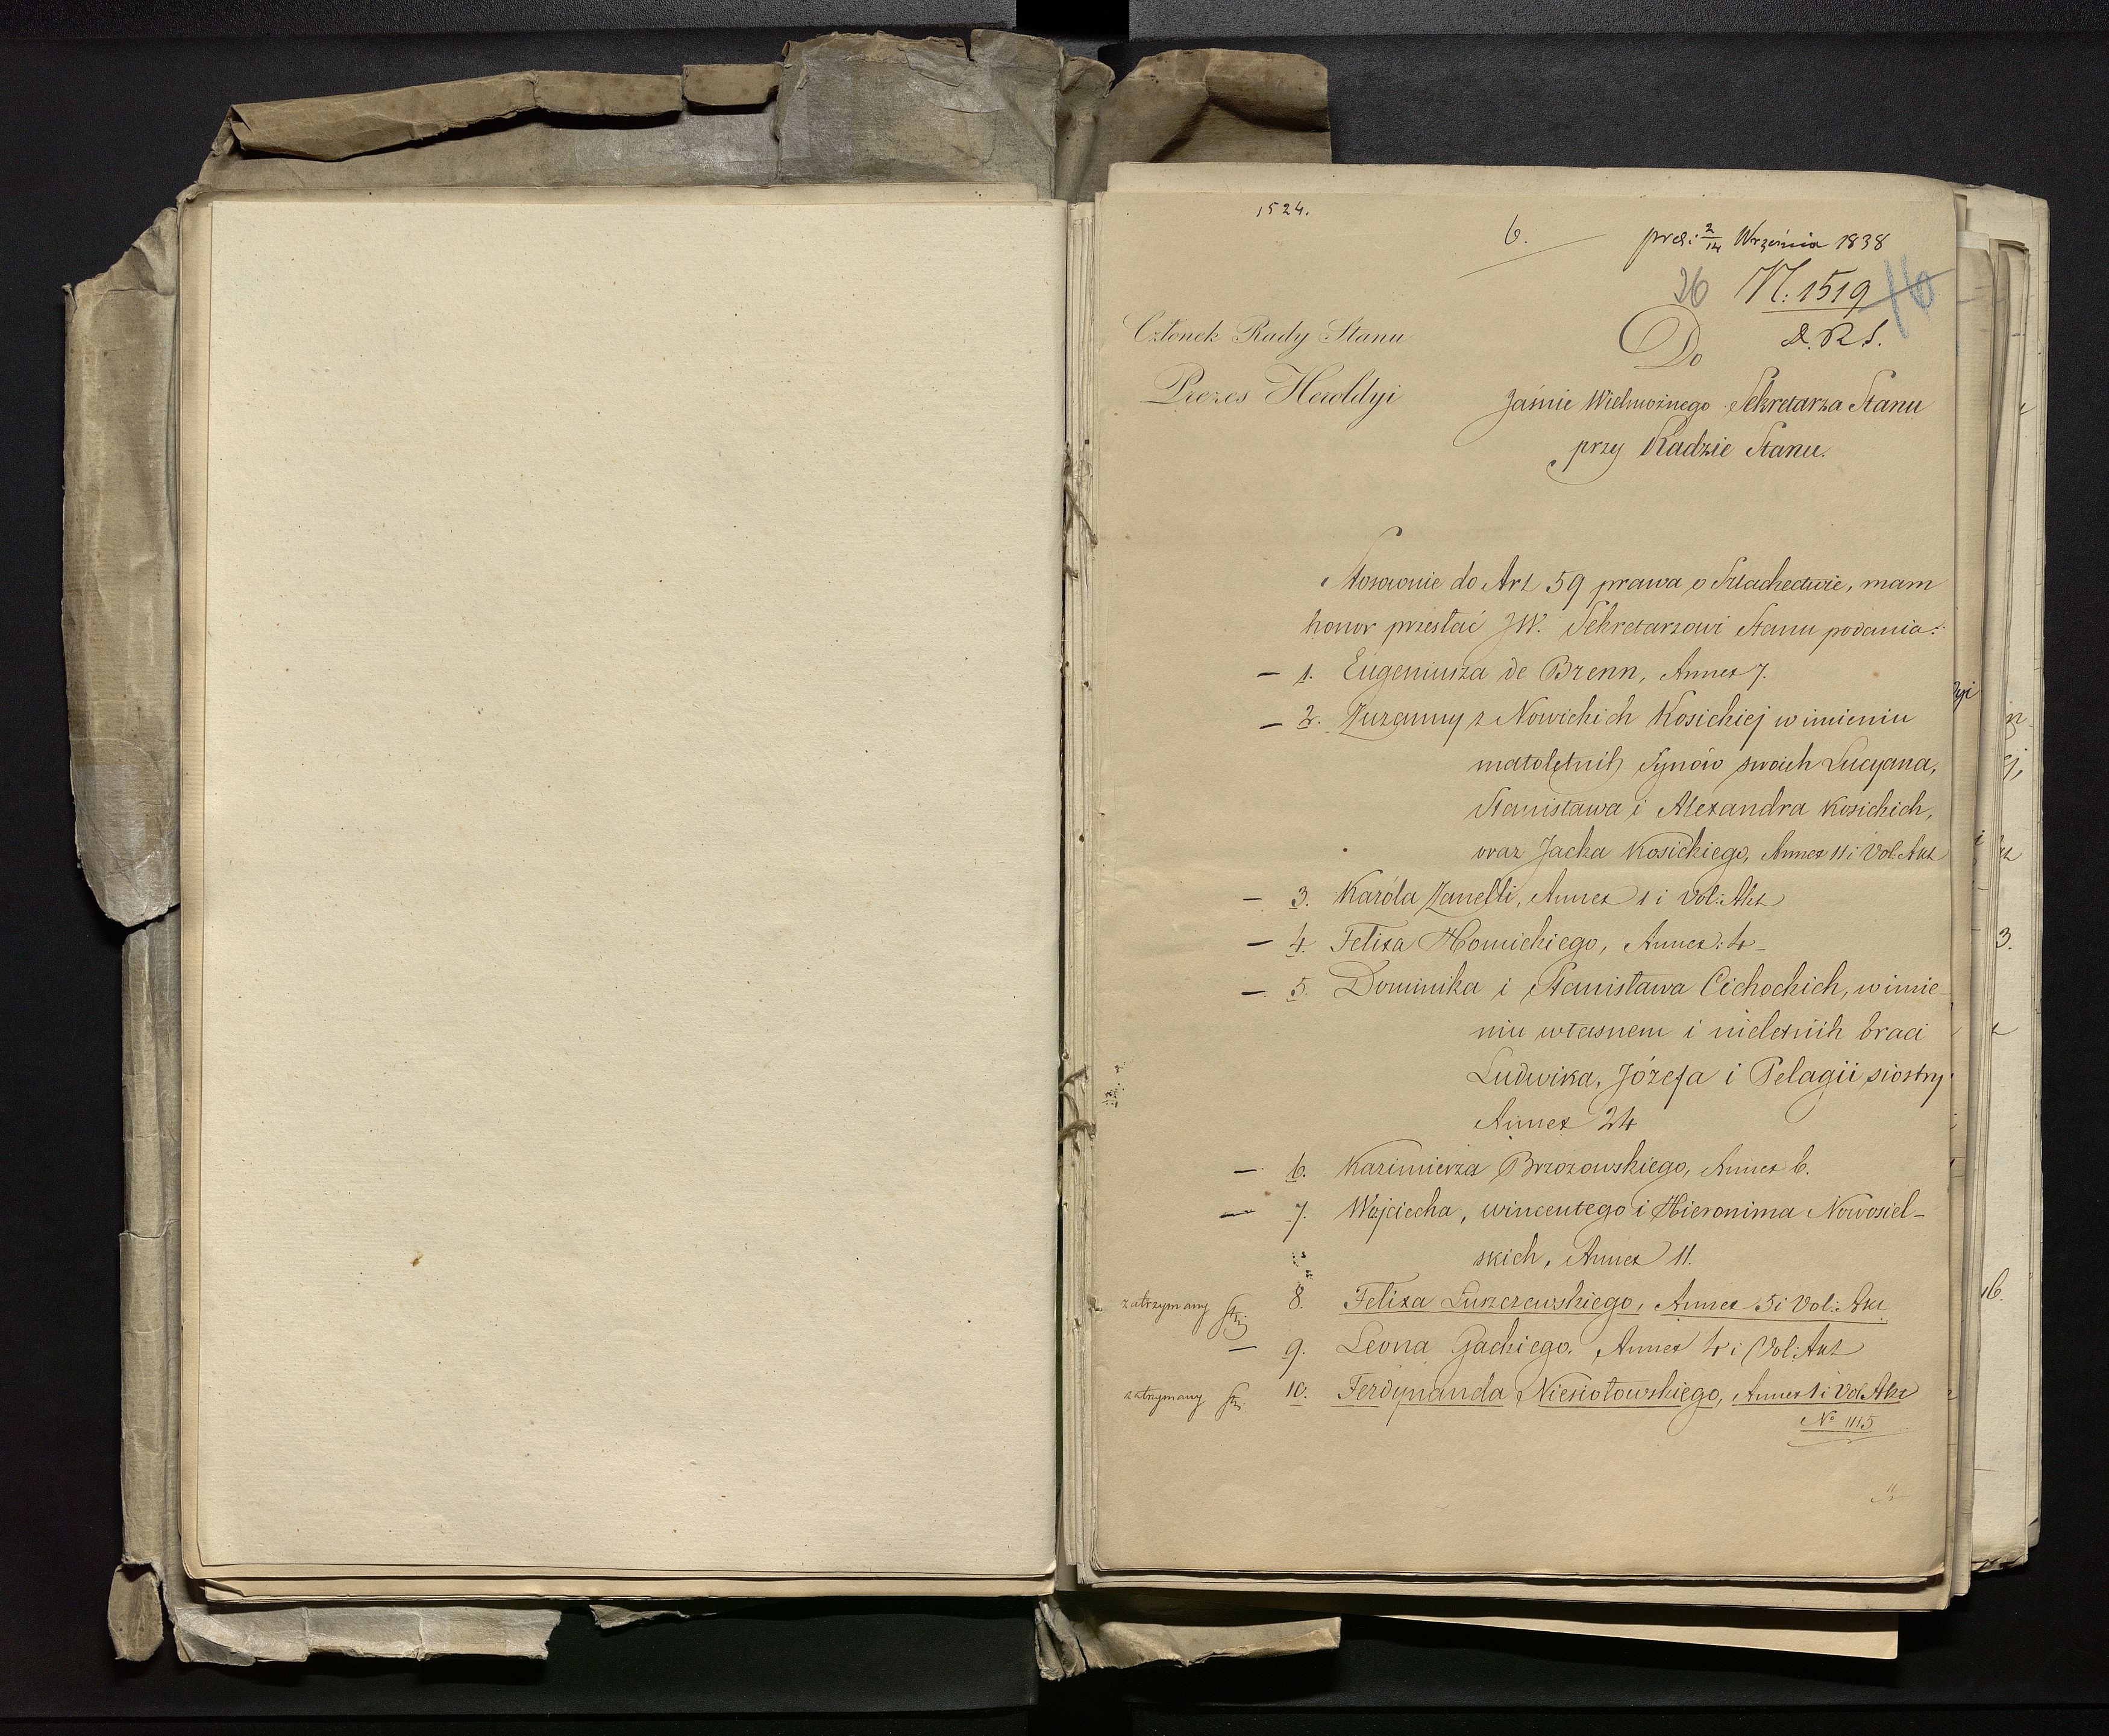 1524.
6.
prez: 2/14 Września 1838
26 N: 1519 16
D. R S.
Członek Rady Stanu
Prezes Heroldyi
Do
Jaśnie Wielmożnego Sekretarza Stanu
przy Radzie Stanu.
Stosownie do Art 59 prawa o Szlachectwie, mam
honor przesłać JW. Sekretarzowi Stanu podania:
— 1. Eugeniusza de Brenn, Annex 7.
— 2. Zuzanny z Nowickich Kosickiej w imieniu
małoletnih Synów swoich Lucyana,
Stanisława i Alexandra Kosickich,
oraz Jacka Kosickiego, Annex 11 i Vol: Akt
— 3. Karóla Zanelli, Annex 1 i Vol: Akt
— 4. Felixa Homickiego, Annex: 4 —
— 5. Dominika i Stanisława Cichockich, w imie-
niu własnem i nieletnih braci
Ludwika, Józefa i Pelagii siostry
Annex 24
— 6. Kazimierza Brzozowskiego, Annex 6.
— 7. Wojciecha, Wincentego i Hieronima Nowosiel-
skich, Annex 11.
zatrzymany 8. Felixa Łuszczewskiego, Annex 5 i Vol: Akt
— 9. Leona Gackiego. Annex 4 i Vol: Akt
zatrzymany 10. Ferdynanda Niesiołowskiego, Annex 1 i Vol: Akt
No 1115